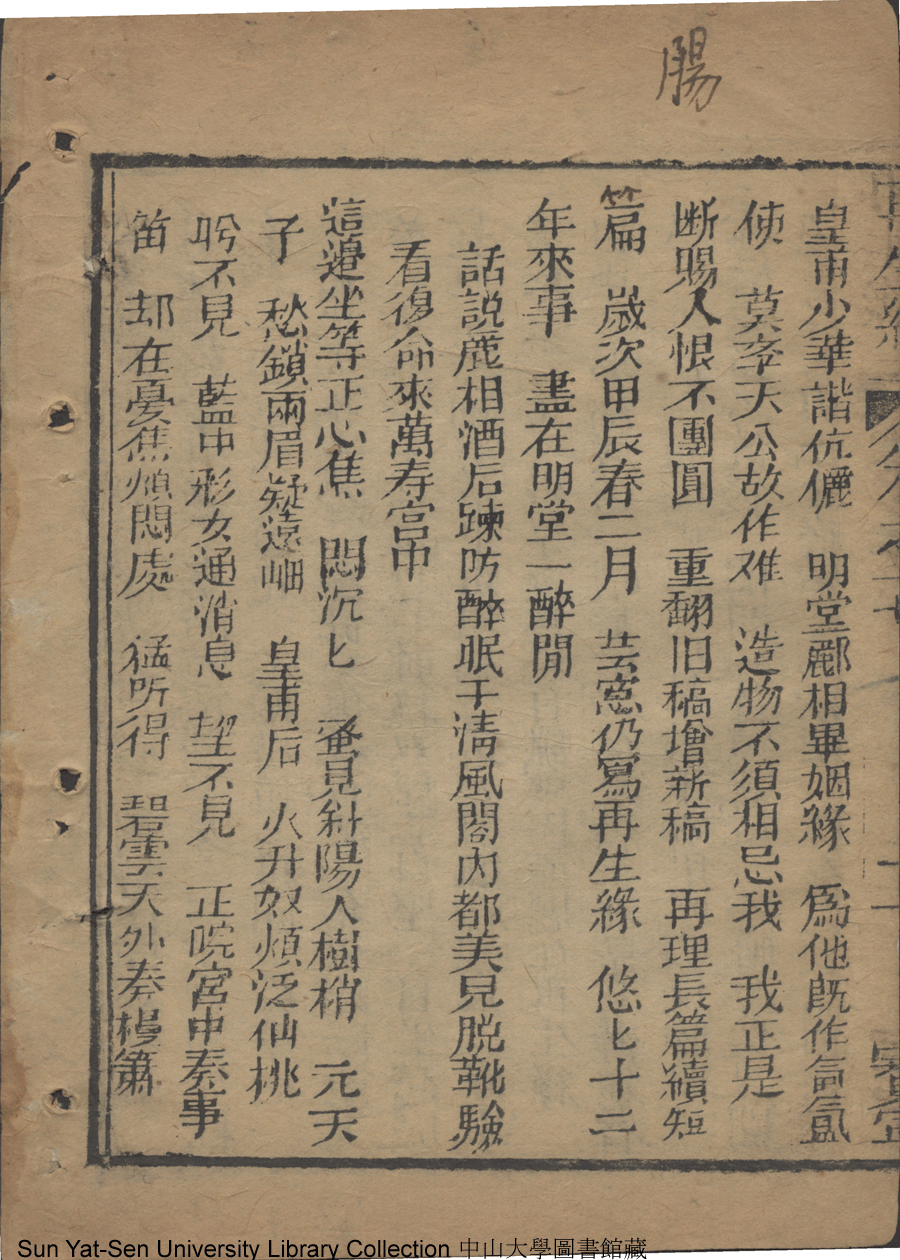 腸
皇甫少華諧伉儷　明堂酈相畢姻緣　爲他既作氤氳
使　莫枩天公故作难　造物不須相忌我　我正是
断賜人恨不團圓　重翻旧稿增新稿　再理長篇續短
篇　歲次甲辰春二月　芸窓仍寫再生緣　悠匕十二
年來事　盡在明堂一醉間
話説鹿相酒后踈防醉眠于清風閣内都美児脱靴驗
看復命來萬寿宮中
這邉坐等正心焦　悶沉匕　蚤見斜陽人樹梢　元天
子　愁鎖兩眉疑遠岫　皇甫后　火升奴煩泛仙桃
盻不見　藍中形女通消息　望不見　正院宮中奏事
笛　却在憂焦煩悶處　猛听得　碧雲天外奏檀簫
Sun Yat-Sen University Library Collection 中山大學圖書館藏